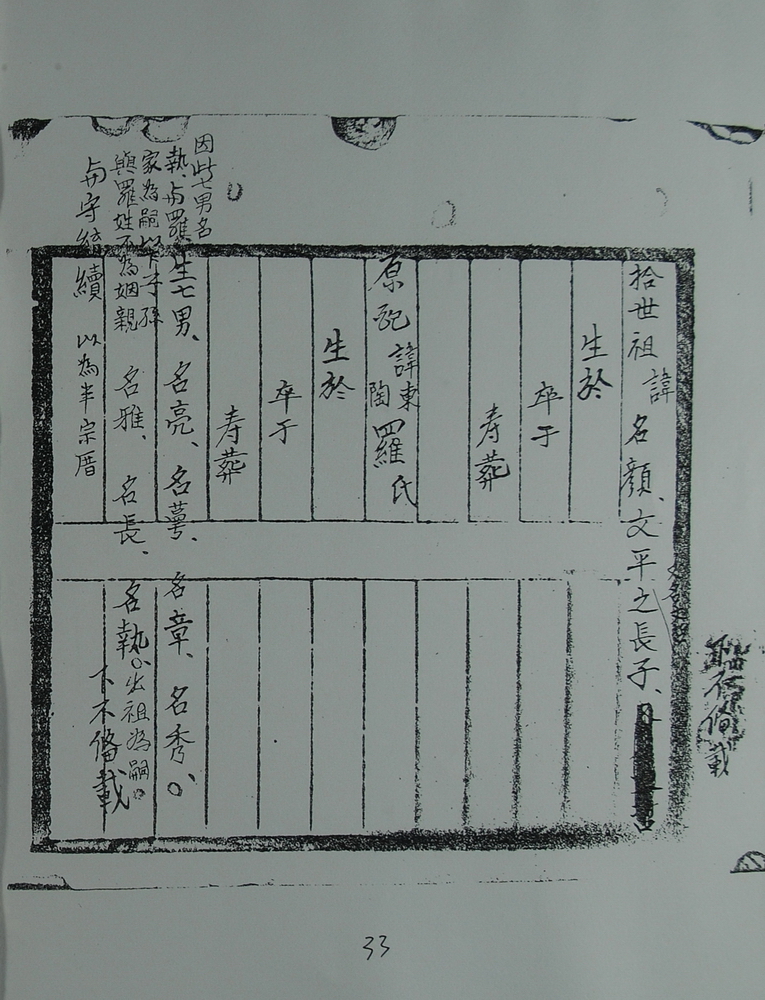 拾世祖諱名顔、文平之長子、
生於
卒于
寿葬
原配諱東陶羅氏
生於
卒于
寿葬
生七男、名亮、名蕚、名章、名秀、
名雅、名長、名執、出祖為嗣。
下不俻載
因此七男名
執、与羅
家為嗣以下子孫
與羅姓不為姻親
与守續 以為半宗厝
俻載
33